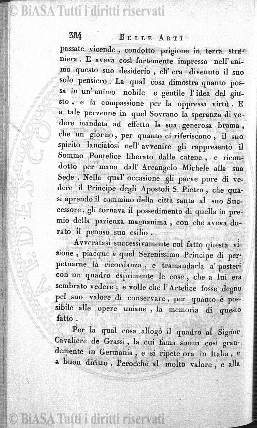 © BiASA Tutti i diritti riservati
384 BELLE ARTI
passate vicende, condotto prigione in terra stra-
niera. E aveva così fortemente impresso nell'ani-
mo questo suo desiderio, ch'era divenuto il suo
solo pensiero. La qual cosa dimostra quanto pos-
sa in un'animo nobile e gentile l'idea del giu-
sto, e la compassione per la oppressa virtù. E
a tale pervenne in quel Sovrano la speranza di ve-
dere mandata ad effetto la sua generosa brama,
che un giorno, per quanto ci riferiscono, i suoi
spirito lanciatosi nell'avvenire gli rappresentò il
Sommo Pontefice liberato dalle catene, e ricon-
dotto per mano dall'Arcangelo Michele alla sua
Sede. Nella qual'occasione gli parve pure di ve-
dere il Principe degli Apostoli S. Pietro, che qua-
si aprendo il cammino della città santa al suo Suc-
cessore, gli tornava il possedimento di quella in pre-
mio della pazienza magnanima, con che aveva du-
rato il penoso suo esilio.
Avveratasi successivamente col fatto questa vi-
sione, piacque a quel Serenissimo Principe di per-
petuarne la ricordanza, e tramandarla a' posteri
con un quadro esprimente le cose, che a lui era
sembrato vedere; e volle che l'Artefice fosse degno
pel suo valore di conservare, per quanto è pos-
sibile alle opere umane, la memoria di questo
fatto.
Per la qual cosa allogò il quadro al Signor
Cavaliere de Grassi, la cui fama suona così gran-
demente in Germania, e si ripete ora in Italia, e
a buon diritto. Perocchè al molto valore, e alla
© BiASA Tutti i diritti riservati